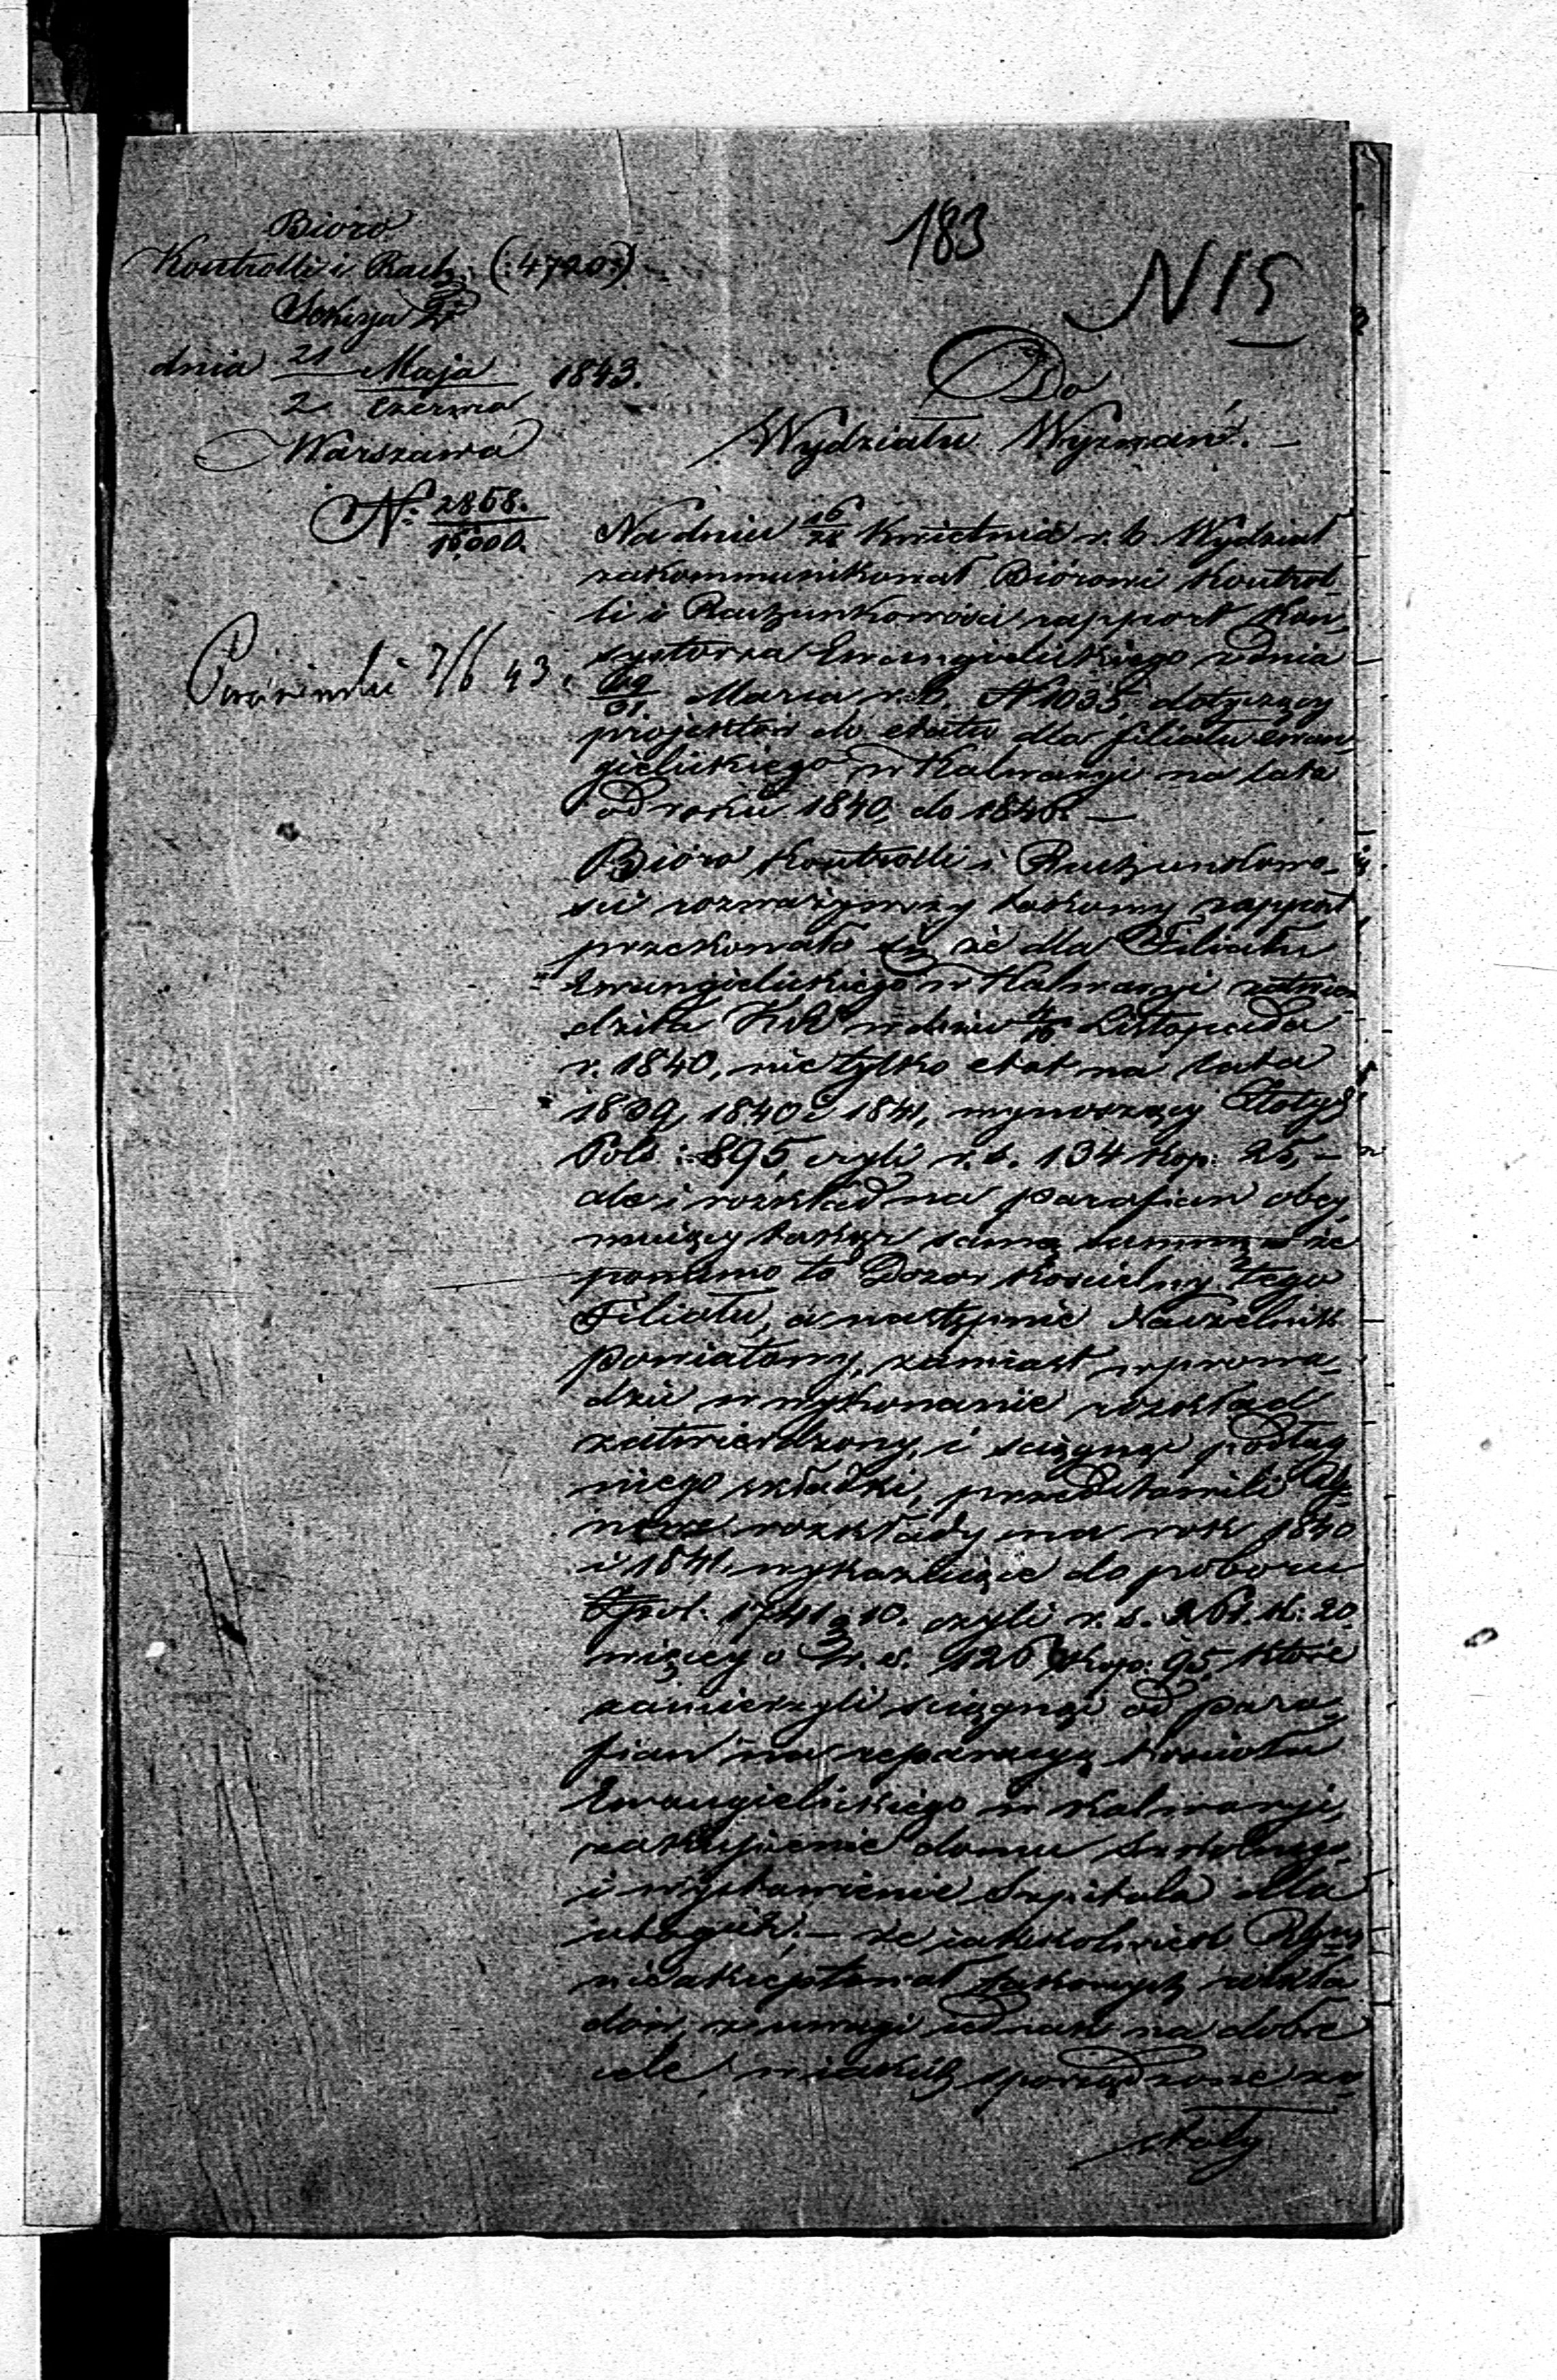 183
N 15
Bióro
Kontrolli i Rach. (:4720:)
Sekcya
dnia 21 Maja / 2 Czerwca 1843.
Warszawa
N: 2868. / 15,000.
7/6 43.
Do
Wydziału Wyznań. —
Na dniu 16/28 Kwietnia r. b. Wydział
zakommunikował Biórowi Kontrol-
li i Rachunkowości rapport Kon-
systorza Ewangielickiego z dnia
19/31. Marca r. b. N 1035, dotyczący
projektów do etatu dla filiału ewan-
gielickiego w Kalwaryi na lata
od roku 1840, do 1845. —
Bióro Kontrolli i Rachunkowo-
ści rozważywszy takowy rapport
przekonało się że dla Filiału
Ewangielickiego w Kalwaryi zatwier-
dziła w dniu Listopada
r. 1840, nie tylko etat na lata
1839, 1840 i 1841, wynoszący Złotych
Pols: 895, czyli r. s. 134 kop: 25, —
ale i rozkład na parafian obej-
mujący takąż samą summę że
pomimo to Dozór Kościelny tego
Filiału, a następnie Naczelnik
Powiatowy, zamiast wprowa-
dzić w wykonanie rozkład
zatwierdzony, i ściągnąć podług
niego składki, przedstawili
nowe rozkłady na rok 1840
i 1841. wykazujące do poboru
Zpol. 1741 g 10. czyli r. s. 261. k: 20
więcej o r. s. 126 kop: 95, które
zamierzyli ściągnąć od para-
fian na reparacyą kościoła
Ewangielickiego w Kalwaryi,
zakupienie domu szkolnego,
i wystawienie Szpitala dla
ubogich; — że jakkolwiek
nieakceptował takowych rozkła-
dów, z uwagi jednak na dobre
cele, w jakich sporządzone zo-
stały